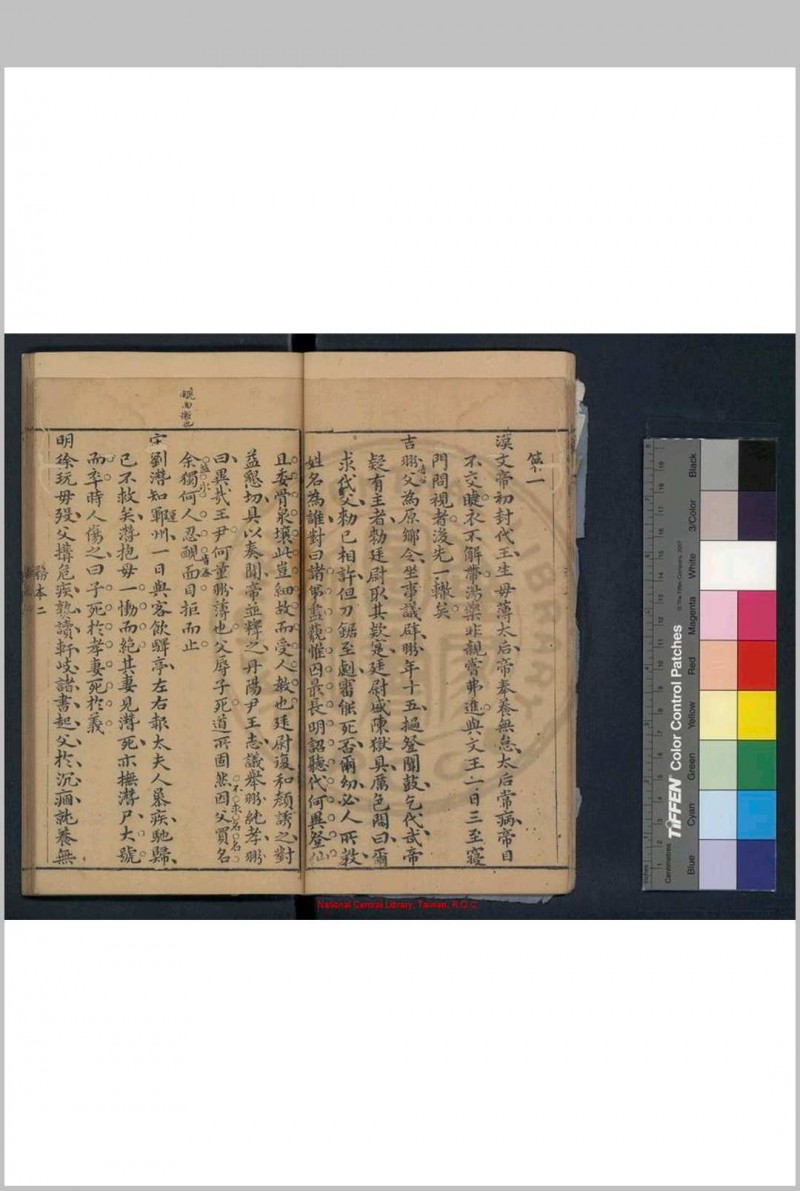 漢文帝初封代王生母薄太后帝奉養無怠太后常病帝目
不交睫衣不解帶湯藥非親嘗弗進與文王一日三至寢
門問視者後先一轍矣
吉翂父為原鄉令坐事議辟翂年十五撾登聞鼓乞代武帝
疑有主者勅廷尉取其款實廷尉盛陳獄具厲色問曰爾
求代父勅已相許但刀鋸至劇審能死否爾幼必人所教
姓名為誰對曰諸弟盡藐惟囚最長明詔聽代何異登仙
且委骨泉壤此豈細故而受人教也廷尉復和顏誘之對
益懇切具以奏聞帝並釋之丹陽尹王志議舉翂純孝翂
曰異哉王尹何量翂薄也父辱子死道所固然因父買名
不求名
余獨何人忍靦面目拒而止
靦面慚也
宋劉潛知鄆州一日與客飲驛亭左右報太夫人暴疾馳歸
已不救矣潛抱母一慟而絕其妻見潛死亦撫潛尸大號
而卒時人傷之曰子死於孝妻死於義
明徐玩母歿父搆危疾熟讀軒岐諸書起父於沉痼純養無
務本二
National Central Library, Taiwan, R.O.C
TIFFEN Color Control Patches
© The Tiffen Company, 2007
Centimetres
Inches
Blue
Cyan
Green
Yellow
Red
Magenta
White
3/Color
Black